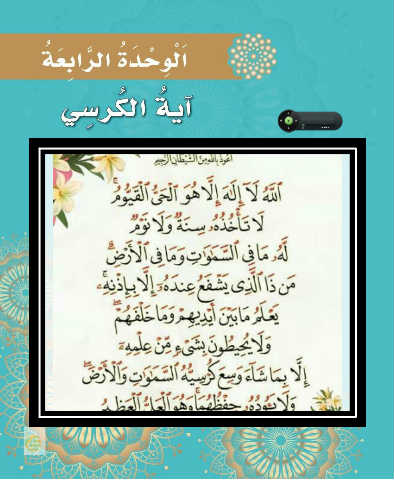 اَلْوِحْدَةُ الرَّابِعَةُ
آيةُ الكُرسِي
أعوذ بالله من الشيطان الرجيم
ٱللَّهُ لَآ إِلَٰهَ إِلَّا هُوَ ٱلْحَىُّ ٱلْقَيُّومُ
لَا تَأْخُذُهُۥ سِنَةٌ وَلَا نَوْمٌ
لَّهُۥ مَا فِى ٱلسَّمَٰوَٰتِ وَمَا فِى ٱلْأَرْضِ
مَن ذَا ٱلَّذِى يَشْفَعُ عِندَهُۥٓ إِلَّا بِإِذْنِهِۦ
يَعْلَمُ مَا بَيْنَ أَيْدِيهِمْ وَمَا خَلْفَهُمْ
وَلَا يُحِيطُونَ بِشَىْءٍ مِّنْ عِلْمِهِۦٓ
إِلَّا بِمَا شَآءَ وَسِعَ كُرْسِيُّهُ ٱلسَّمَٰوَٰتِ وَٱلْأَرْضَ
وَلَا يَـُٔودُهُۥ حِفْظُهُمَا وَهُوَ ٱلْعَلِىُّ ٱلْعَظِيمُ